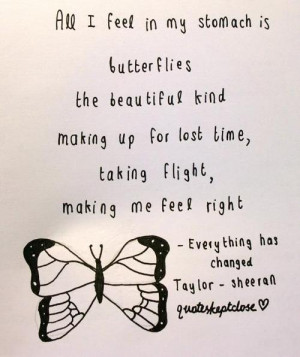 All I feel in my stomach is
butterflies
the beautiful kind
making up for lost time,
taking flight,
making me feel right
- Everything has
changed
Taylor - sheeran
quoteskeptclose ♡